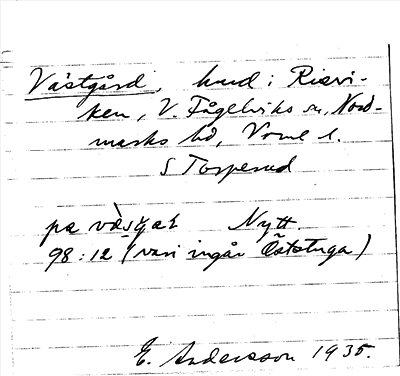 Västgård, hmd i Risvi-
ken, V. Fågelviks sn, Nord-
marks hd, Vrml l.
S Torperud
pa væsgaɫ Nytt.
98:12 (vari ingår Öststuga)
E. Andersson 1935.